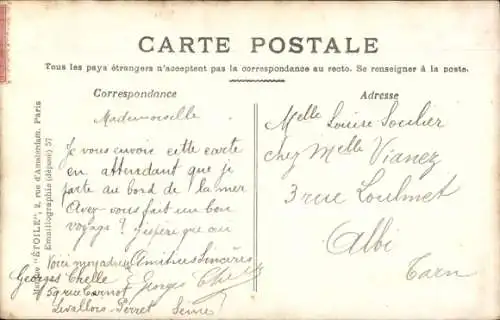 CARTE POSTALE
Tous les pays étrangers n'acceptent pas la correspondance au recto. Se renseigner à la poste.
Correspondance
Mademoiselle
Je vous envoie cette carte
en attendant que je
parte au bord de la mer
Avez-vous fait un bon
voyage? J'espère que oui
Voici mon adresse Amitiés Sincères
Georges Chelle Georges Chelle
59 rue Carnot
Levallois-Perret Seine
Adresse
Melle Louise Soulier
chez Melle Vianez
3 rue Loulmet
Albi
Tarn
"ÉTOILE", 2, rue d'Amsterdam, Paris
Émaillographie (déposé) 57